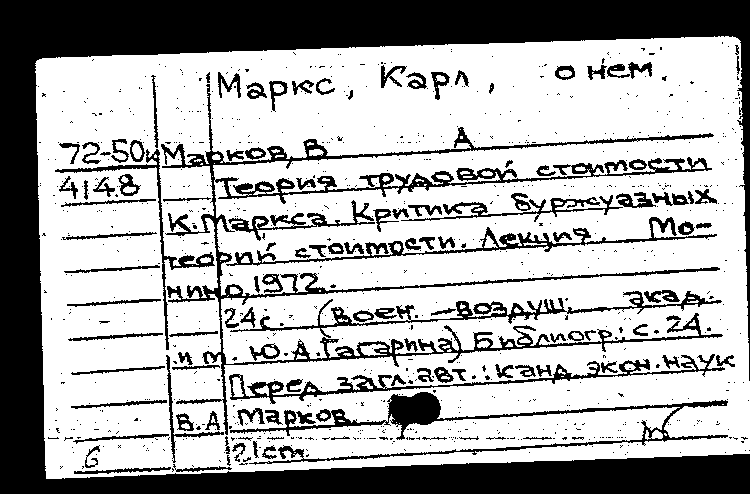 Маркс, Карл, о нем.
72-50к Марков, В А
4148 Теория трудовой стоимости
К. Маркса. Критика буржуазных
теорий стоимости. Лекция. Мо-
нино, 1972.
24с. (Воен.-воздуш. акад.
им. Ю.А.Гагарина) Библиогр.: с.24.
Перед загл.авт.: канд. экон. наук
В.А Марков.
21см
6